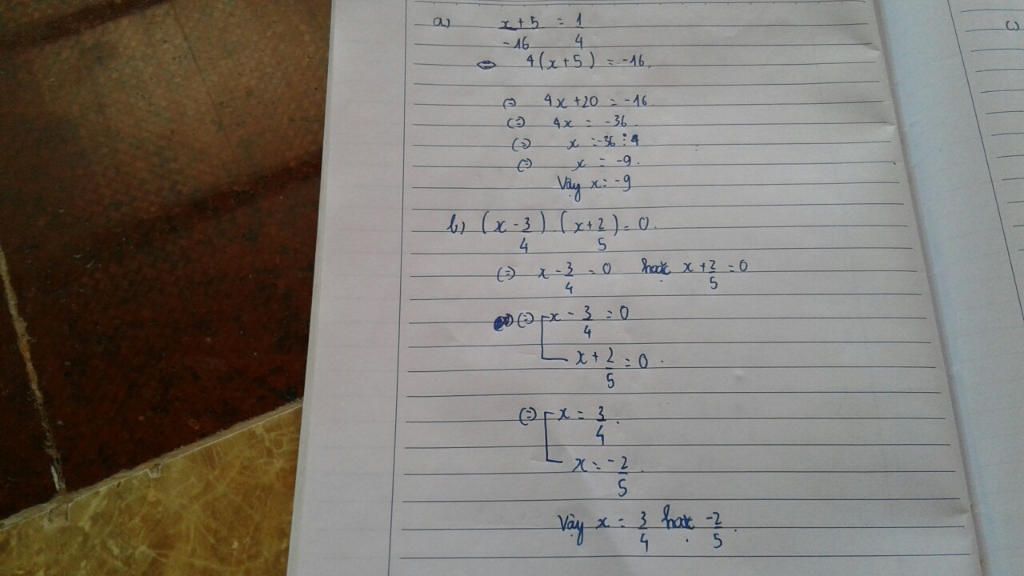 a) x+5 = 1
-16 4
⇔ 4(x+5) = -16.
(=) 4x+20 = -16
(=) 4x = -36.
(=) x = -36 : 4
(=) x = -9.
Vậy x = -9
b) (x-3) (x+2) = 0.
4 5
(=) x-3 = 0 hoặc x+2 = 0
4 5
(=) x - 3 = 0
4
x+2 = 0.
5
(=) x = 3
4.
x = -2.
5
Vậy x = 3 hoặc -2.
4 5
c)